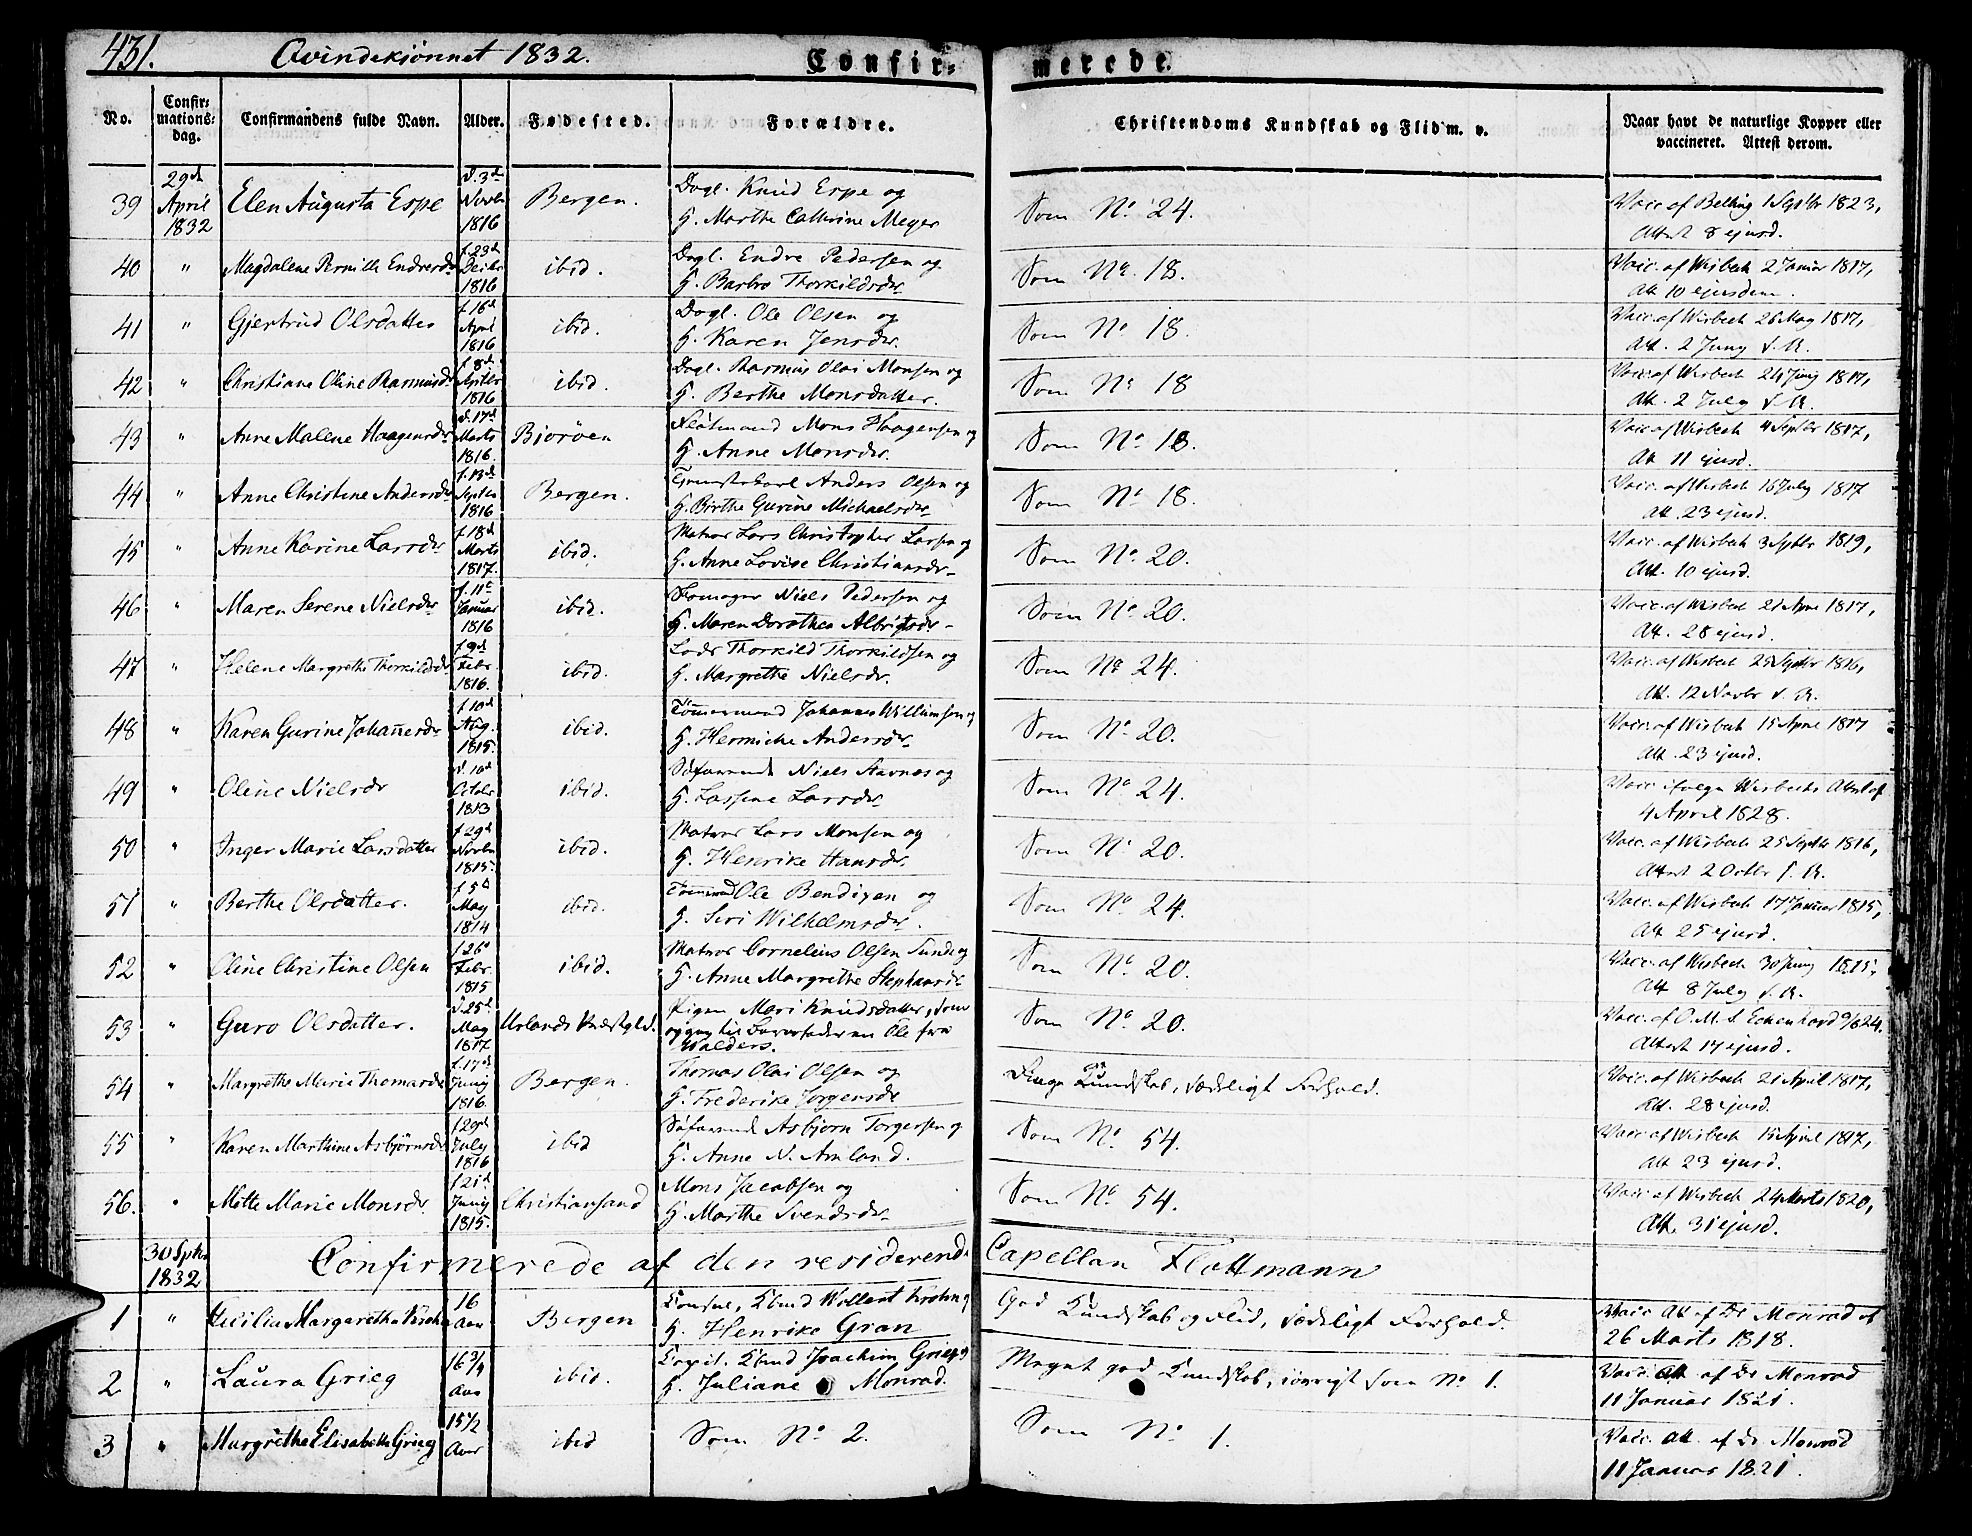 431. Qvindekjønnet 1832. Confirmerede.
No. Confirmations-dag. Confirmandens fulde Navn. Alder. Fødested. Forældre. Christendoms Kundskab og Flid m. v. Naar havt de naturlige Kopper eller vaccineret. Attest derom.
39 29de April 1832 Elen Augusta Espe d. 3de Novbr 1816 Bergen. Dagl. Knud Espe og
H. Marthe Cathrine Meyer Som No. 24. Vacc. af Belling 1 Septbr 1823,
Attest 8 ejusd.
40 " Magdalene Pernille Endresdr f. 23de Decbr 1816 ibid. Dagl. Endre Pedersen og
H. Barbro Thorkildsdr Som No. 18. Vacc. af Wisbech 2 Januar 1817,
Att. 10 ejusdem.
41 " Gjertrud Olsdatter f. 16de April 1816 ibid. Dagl. Ole Olsen og
H. Karen Jensdr. Som No 18. Vacc. af Wisbech 26 May 1817,
Att. 2 Juny s. A.
42 " Christiane Oline Rasmusdr f. 8de Septbr 1816 ibid. Dagl. Rasmus Olai Monsen og
H. Berthe Monsdatter. Som No 18 Vacc. af Wisbech 24 Juny 1817,
Att. 2 July s. A.
43 " Anne Malene Haagensdr d. 17de Marts 1816. Bjorøen Flötmand Mons Haagensen og
H. Anne Monsdr. Som No. 18. Vacc. af Wisbech 4 Septbr 1817,
Att 11 ejusd.
44 " Anne Christine Andersdr f. 13de Septbr 1816 Bergen. Anders Olsen og
H. Birthe Gurine Michaelsdr Som No 18. Vacc. af Wisbech 16 July 1817
Att. 23 ejusd.
45 " Anne Karine Larsdr f. 18de Marts 1817. ibid. Matros Lars Christopher Larsen og
H. Anne Lovise Christiansdr Som No. 20. Vacc. af Wisbech 3 Septbr 1819,
Att. 10 ejusd.
46 " Maren Serene Nielsdr f. 11te Januar 1816 ibid. Skomager Niels Pedersen og
H. Maren Dorothea Albrigtsdr Som No. 20. Vacc. af Wisbech 21 April 1817,
Att. 28 ejusd.
47 " Helene Margrethe Thorkildsdr f. 9de Febr. 1816. ibid. Lods Thorkild Thorkildsen og
H. Margrethe Nielsdr. Som No 24. Vacc. af Wisbech 25 Septbr 1816,
Att. 12 Novbr s. A.
48 " Karen Gurine Johannesdr f. 10de Aug. 1815. ibid. Tömmermand Johannes Willumsen og
H. Hermiche Andersdr Som No. 20. Vacc. af Wisbech 15 April 1817
Att. 23 ejusd.
49 " Oline Nielsdr d. 10de Octobr 1813 ibid. Søfarende Niels Stavnes og
H. Lassene Larsdr Som No 24. Vacc. ifølge Wisbechs Attest af
4 April 1828.
50 " Inger Marie Larsdatter f. 29de Novbr 1815. ibid. Matros Lars Monsen og
H. Henrike Hansdr. Som No 20. Vacc. af Wisbech 25 Septbr 1816,
Attest 2 Octbr s. A.
51 " Berthe Olsdatter. f. 5te May 1814 ibid. Tömmd Ole Bendixen og
H. Siri Wilhelmsdr. Som No 24. Vacc. af Wisbech 17 Januar 1815,
Att 25 ejusd.
52 " Oline Christine Olsen f. 26de Febr. 1815 ibid. Matros Cornelius Olsen Sunde og
H. Anne Margrethe Stephansdr Som No. 20. Vacc. af Wisbech 30 Juny 1815,
Att 8 July s. A.
53 " Guro Olsdatter. d. 25de May 1817 Urlands Præstgld. Pigen Mari Knudsdatter, som
opgav til Barnefader en Ole fra
Walders. Som No. 20. Vacc. af O. M. S. Eckenhard 9/6 24.
Attest 17 ejusd.
54 " Margrethe Marie Thomasdr f. 17de Juny 1816. Bergen. Thomas Olai Olsen og
H. Frederike Jørgensdr Kundskab, sædeligt Forhold. Vacc. af Wisbech 21 April 1817,
Att. 28 ejusd.
55 " Karen Marthine Asbjørnsdr f. 29de July 1816 ibid Søfarende Asbjørn Torgersen og
H. Anne N. Amland. Som No. 54. Vacc. af Wisbech 15 April 1817,
Att 23 ejusd.
56. " Mette Marie Monsdr. f. 21de Juny 1815. Christiansand Mons Jacobsen og
H. Marthe Svendsdr Som No. 54. Vacc. af Wisbech 24 Marts 1820,
Att. 31 ejusd.
30 Sptbr 1832 Confirmerede af den residerende Capellan Flottmann
1 " Cicilia Margaretha Krohn 16 Aar Bergen Consul, Kbmd Wollert Krohn og
H. Henrike Gran God Kundskab og Flid, sædeligt Forhold. Vacc. Att. af Dr Monrad af
26 Marts 1818.
2 " Laura Grieg 16 3/4 Aar ibid. Capit. Kbmd Joachim Grieg og
H. Juliane Monrad. Meget god Kundskab, iøvrigt som No. 1. Vacc. Att. af Dr Monrad
11 Januar 1821.
3 " Margrethe Elisabeth Grieg 15 1/2 Aar ibid Som No. 2. Som No. 1. Vacc. Att. af Dr Monrad
11 Januar 1821.